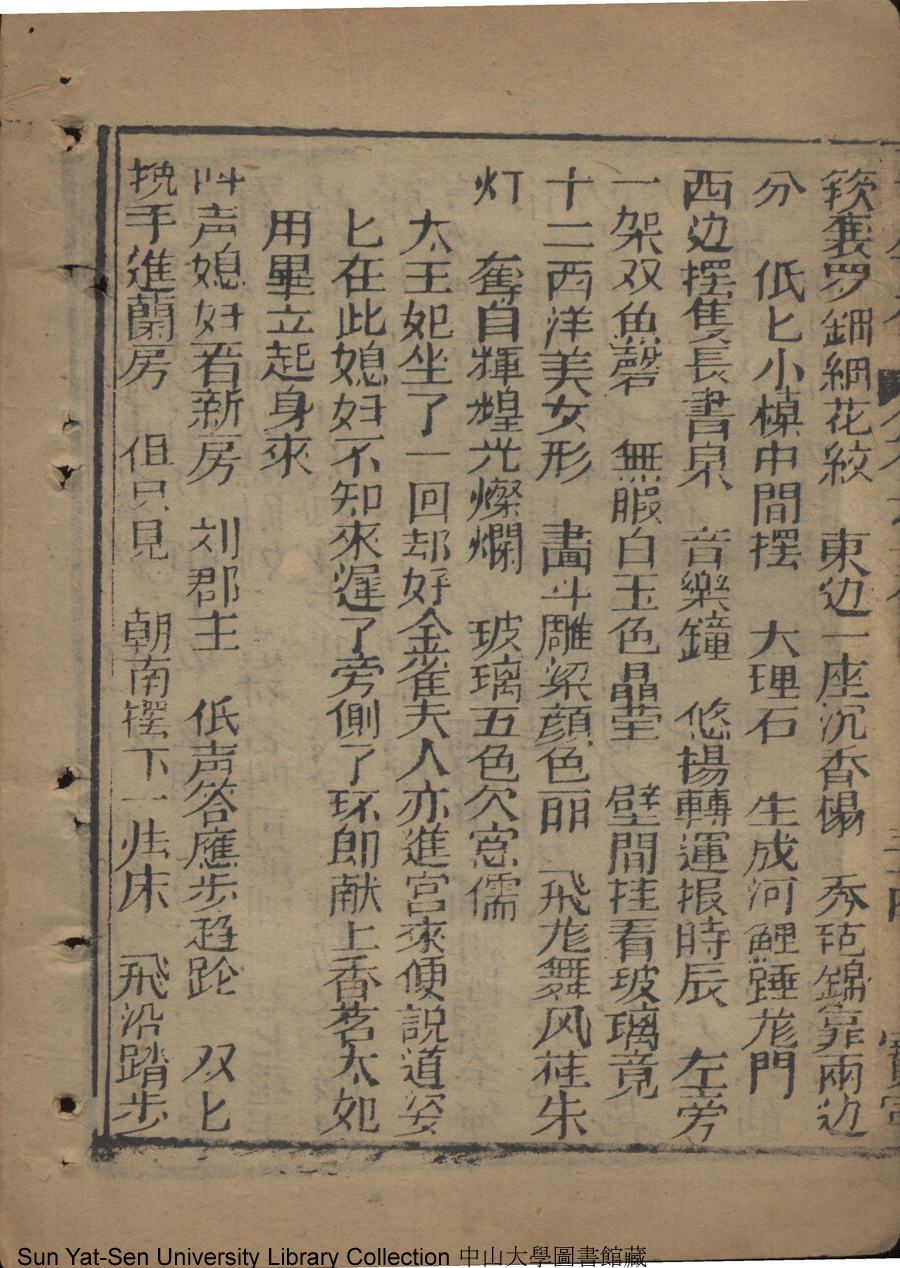 软衮罗鈿綑花絞　東边一座沉香榻　秀芭錦靠兩边
分　低匕小槕中間摆　大理石　生成河鯉踵龙門
西边摆隻長書泉　音樂鐘　悠揚轉運报時辰　左旁
一架双魚磬　無暇白玉色晶莹　壁間挂看玻璃竟
十二西洋美女形　畵斗雕梁顔色丽　飛龙舞风挂朱
灯　奪目輝煌光燦爛　玻璃五色欠窓儒
太王妃坐了一回却好金雀夫人亦進宮來便説道姿
匕在此媳妇不知來遲了旁側了环即献上香茗太妃
用畢立起身來
叫声媳妇看新房　刘郡主　低声答應步趋跄　双匕
挽手進蘭房　但只見　朝南摆下一张床　飛沿踏步
Sun Yat-Sen University Library Collection 中山大學圖書館藏